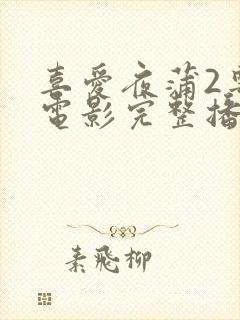 喜愛夜蒲2
電影完整播
素飛柳